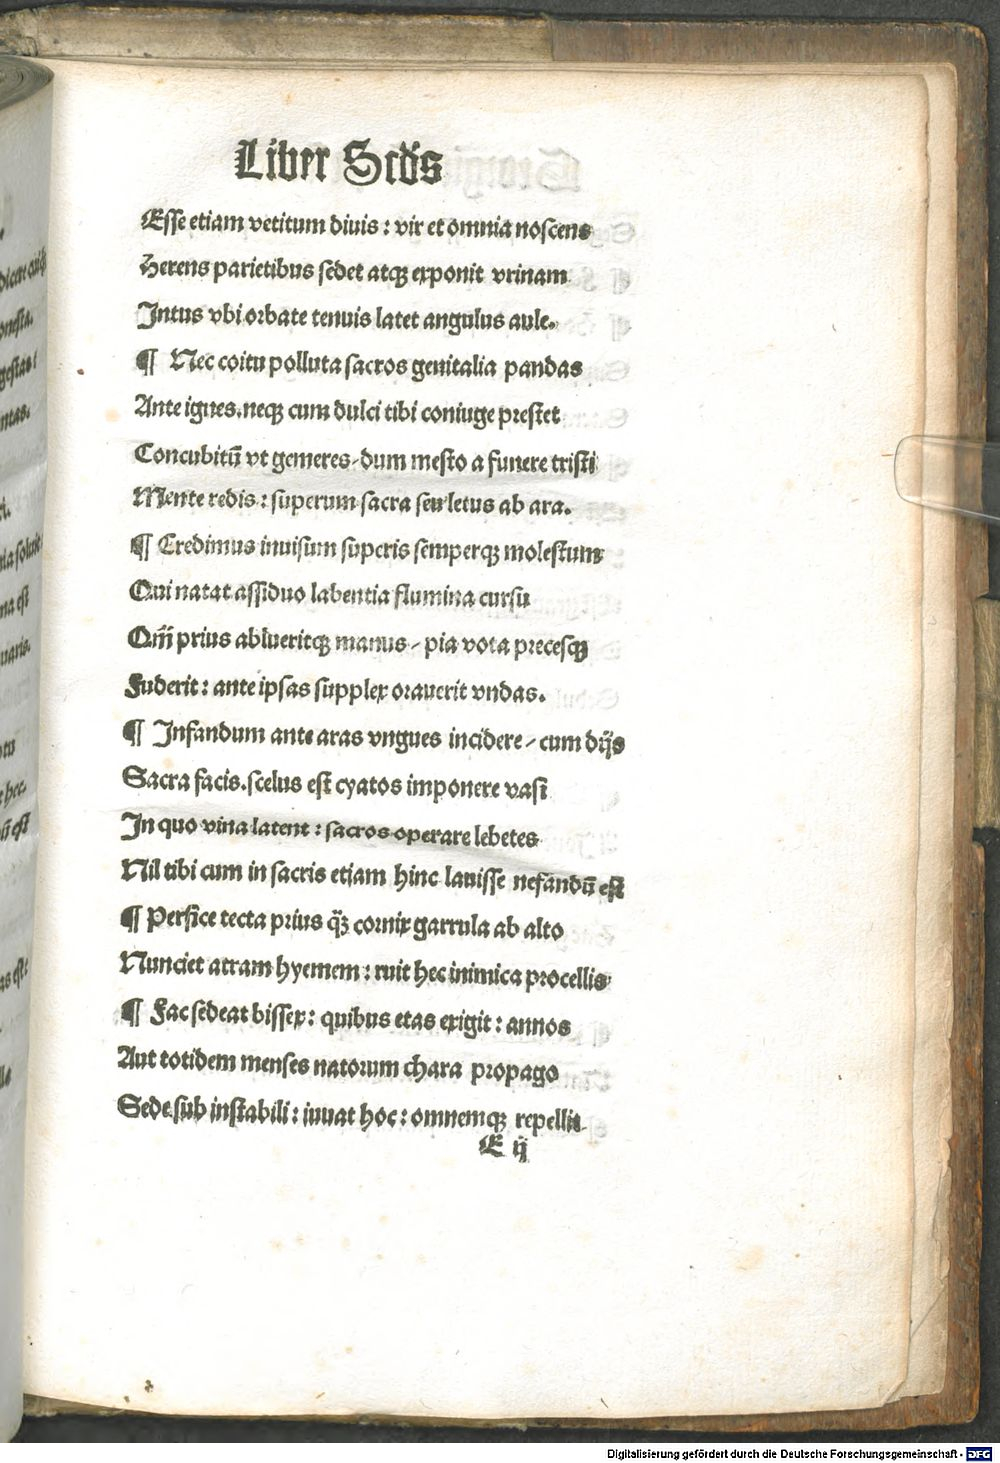 Liber Scd̄s
Esse etiam vetitum divis : vir et omnia noscens
Herens parietibus sedet atqꝫ exponit vrinam
Intus vbi orbate tenuis latet angulus aule.
¶ Nec coitu polluta sacros genitalia pandas
Ante ignes. neqꝫ cum dulci tibi coniuge prestet
Concubitū vt gemeres / dum mesto a funere tristi
Mente redis : superum sacra seu letus ab ara.
¶ Credimus inuisum superis semperqꝫ molestum
Qui natat assiduo labentia flumina cursu
Qm̄ prius ablueritqꝫ manus / pia vota precesqꝫ
Fuderit : ante ipsas supplex orauerit vndas.
¶ Infandum ante aras vngues incidere / cum dijs
Sacra facis. scelus est cyatos imponere vasi
In quo vina latent : sacros operare lebetes
Nil tibi cum in sacris etiam hinc lauisse nefandū est
¶ Perfice tecta prius qꝫ̄ cornix garrula ab alto
Nunciet atram hyemem : ruit hec inimica procellis
¶ Fac sedeat bissex : quibus etas exigit : annos
Aut totidem menses natorum chara propago
Sede sub instabili : iuuat hoc : omnemqꝫ repellit
E ij
Digitalisierung gefördert durch die Deutsche Forschungsgemeinschaft - DFG